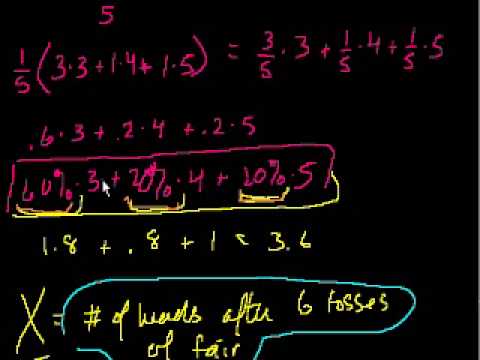 5
1/5 (3·3 + 1·4 + 1·5) = 3/5 · 3 + 1/5 · 4 + 1/5 · 5
.6·3 + .2·4 + .2·5
60%·3 + 20%·4 + 20%·5
1.8 + .8 + 1 = 3.6
X = # of heads after 6 tosses
of fair